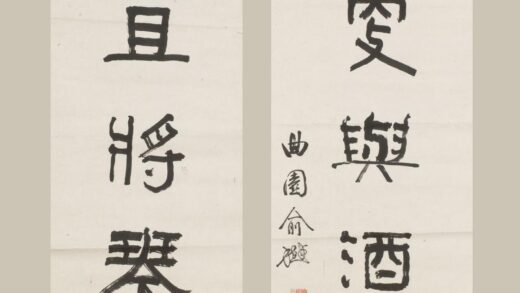 更與酒
曲園俞樾
且將琴